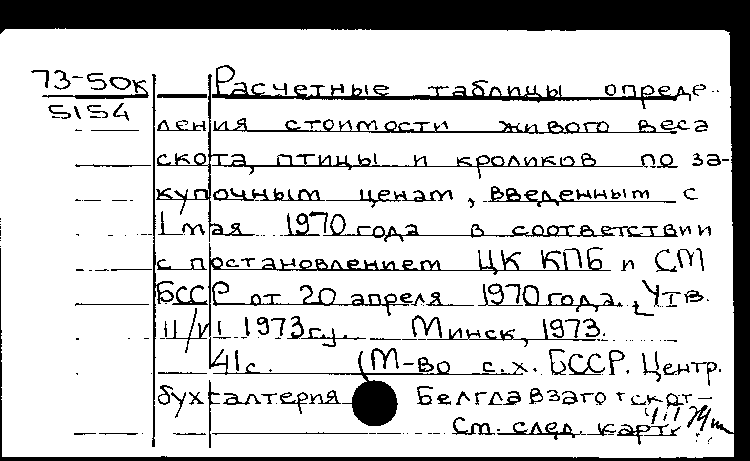 73-50к Расчетные таблицы опреде-
5154
ления стоимости живого веса
скота, птицы и кроликов по за-
купочным ценам, введенным с
1 мая 1970 года в соответствии
с постановлением ЦК КПБ и СМ
БССР от 20 апреля 1970 года. [Утв.
11/VI 1973г.]. Минск, 1973.
41с. (М-во с.х. БССР. Центр.
бухгалтерия Белглавзаготскот-
См. след. карт.